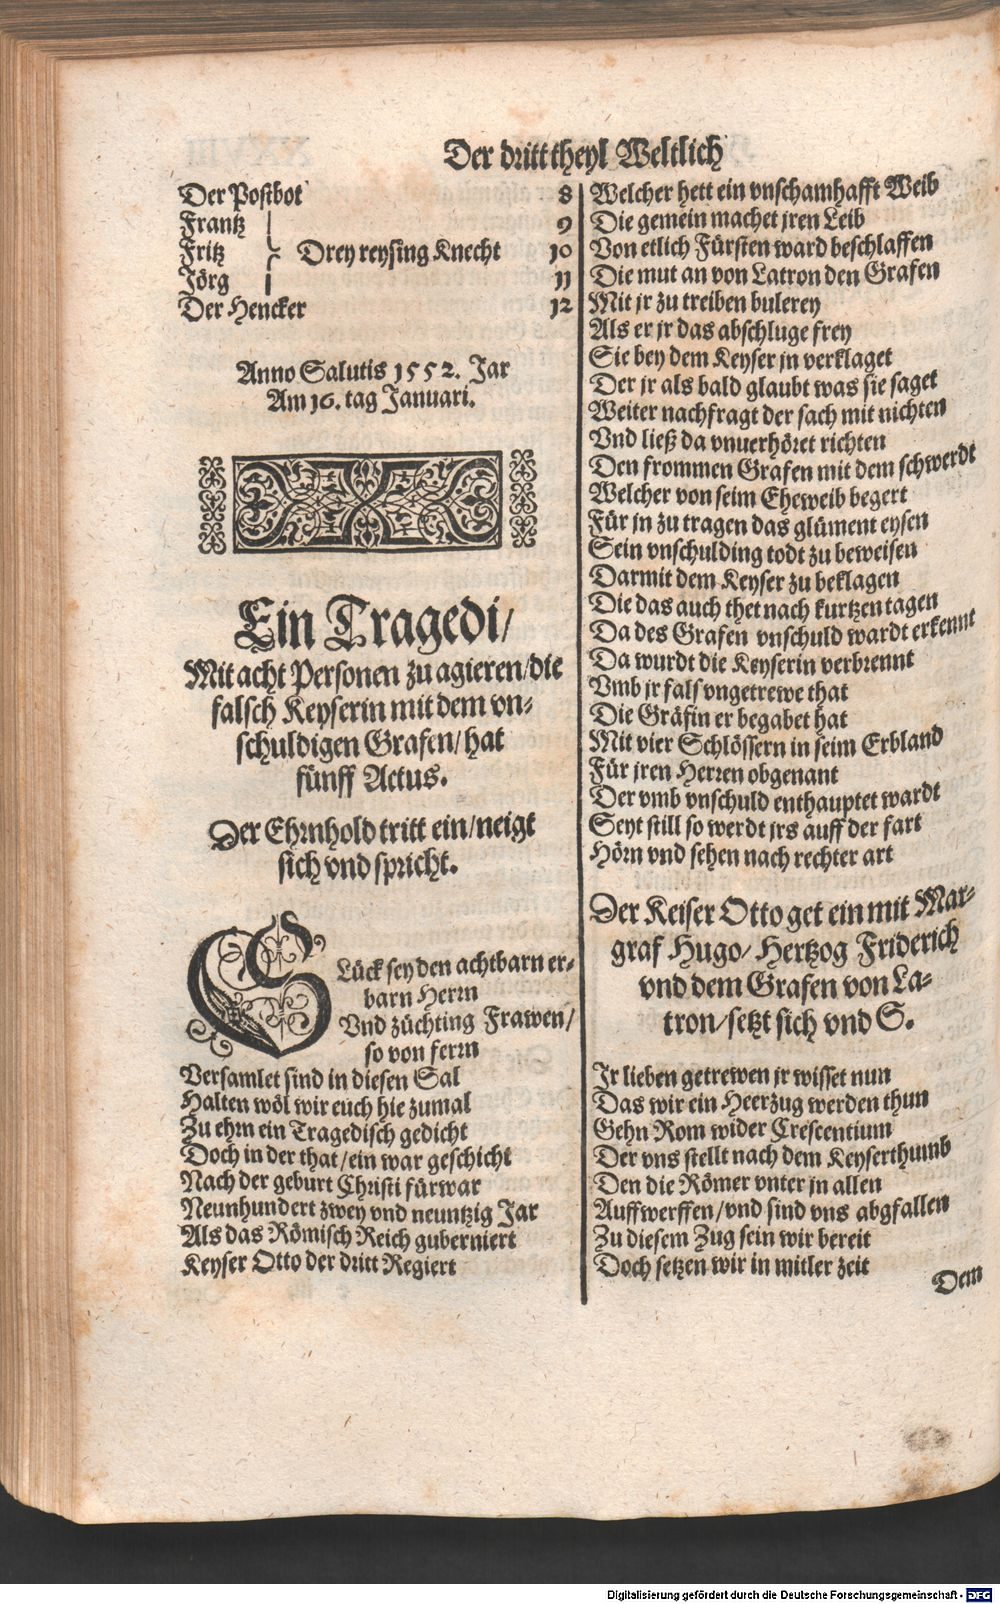 Der dritt theyl Weltlich
Der Postbot 8
Frantz 9
Fritz Drey reysing Knecht 10
Jörg 11
Der Hencker 12
Anno Salutis 1552. Jar
Am 16. tag Januari.
Ein Tragedi/
Mit acht Personen zu agieren/die
falsch Keyserin mit dem vn-
schuldigen Grafen/hat
fünff Actus.
Der Ehrnhold tritt ein/neigt
sich vnd spricht.
GLück sey den achtbarn er-
barn Herrn
Vnd züchting Frawen/
so von ferrn
Versamlet sind in diesen Sal
Halten wöl wir euch hie zumal
Zu ehrn ein Tragedisch gedicht
Doch in der that/ein war geschicht
Nach der geburt Christi fürwar
Neunhundert zwey vnd neuntzig Jar
Als das Römisch Reich guberniert
Keyser Otto der dritt Regiert
Welcher hett ein vnschamhafft Weib
Die gemein machet jren Leib
Von etlich Fürsten ward beschlaffen
Die mut an von Latron den Grafen
Mit jr zu treiben bulerey
Als er jr das abschluge frey
Sie bey dem Keyser jn verklaget
Der jr als bald glaubt was sie saget
Weiter nachfragt der sach mit nichten
Vnd ließ da vnuerhöret richten
Den frommen Grafen mit dem schwerdt
Welcher von seim Eheweib begert
Für jn zu tragen das glüment eysen
Sein vnschulding todt zu beweisen
Darmit dem Keyser zu beklagen
Die das auch thet nach kurtzen tagen
Da des Grafen vnschuld wardt erkennt
Da wurdt die Keyserin verbrennt
Vmb jr fals vngetrewe that
Die Gräfin er begabet hat
Mit vier Schlössern in seim Erbland
Für jren Herren obgenant
Der vmb vnschuld enthauptet wardt
Seyt still so werdt jrs auff der fart
Hörn vnd sehen nach rechter art
Der Keiser Otto get ein mit Mar-
graf Hugo/ Hertzog Friderich
vnd dem Grafen von La-
tron/setzt sich vnd S.
Jr lieben getrewen jr wisset nun
Das wir ein Heerzug werden thun
Gehn Rom wider Crescentium
Der vns stellt nach dem Keyserthumb
Den die Römer vnter jn allen
Auffwerffen/vnd sind vns abgfallen
Zu diesem Zug sein wir bereit
Doch setzen wir in mitler zeit
Dem
Digitalisierung gefördert durch die Deutsche Forschungsgemeinschaft - DFG